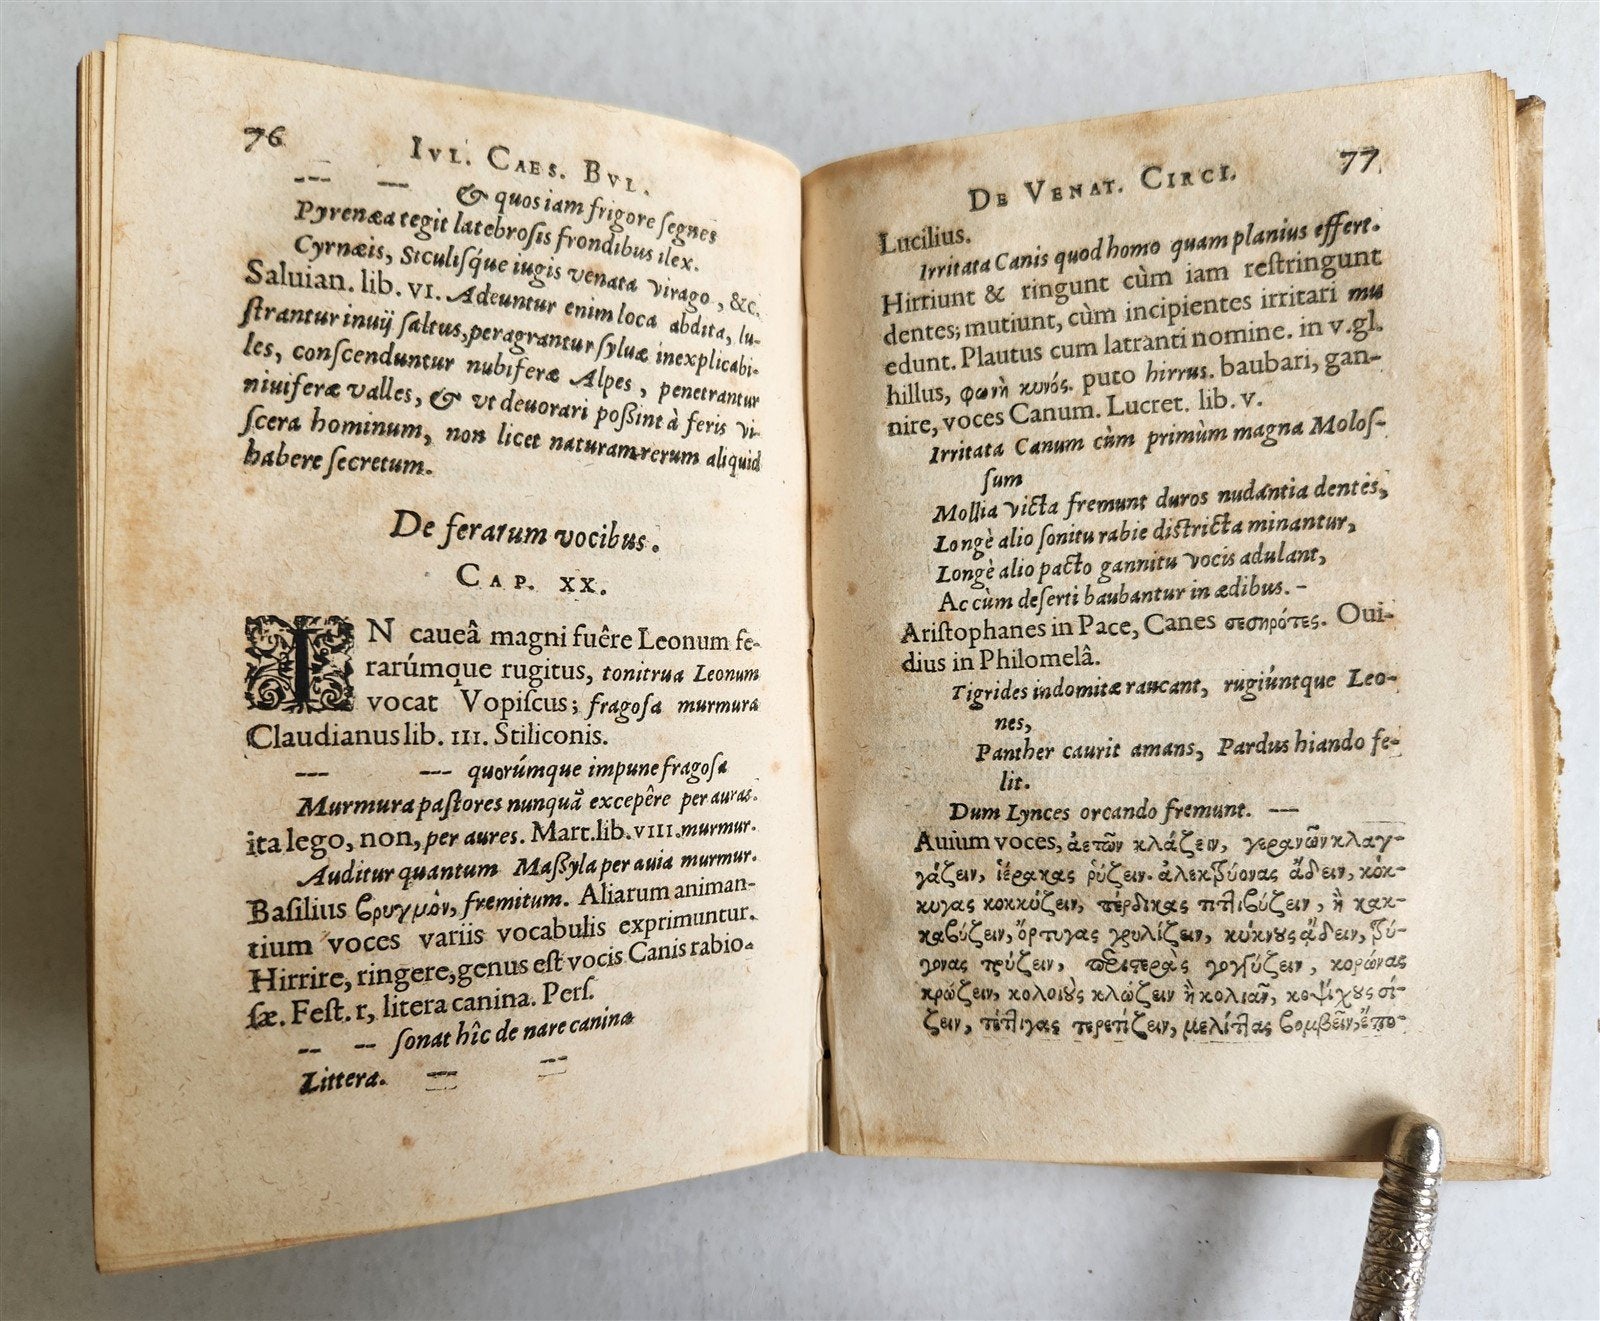 76
IVL. CAES. BVL.
--- --- & quos iam frigore ſegnes
Pyrenæa tegit latebroſis frondibus ilex.
Cyrnæis, Siculiſq́ue iugis venata virago, &c.
Saluian. lib. VI. Adeuntur enim loca abdita, lu-
ſtrantur inuij ſaltus, peragrantur ſyluæ inexplicabi-
les, conſcenduntur nubiferæ Alpes, penetrantur
niuiferæ valles, & vt deuorari poßint à feris vi-
ſcera hominum, non licet naturam rerum aliquid
habere ſecretum.
De ferarum vocibus.
CAP. XX.
IN caueâ magni fuêre Leonum fe-
rarúmque rugitus, tonitrua Leonum
vocat Vopiſcus; fragoſa murmura
Claudianus lib. III. Stiliconis.
--- --- quorúmque impune fragoſa
Murmura paſtores nunquã excepêre per auras.
ita lego, non, per aures. Mart. lib. VIII. murmur.
Auditur quantum Maßyla per auia murmur.
Baſilius βρυγμὸν, fremitum. Aliarum animan-
tium voces variis vocabulis exprimuntur.
Hirrire, ringere, genus eſt vocis Canis rabio-
ſæ. Feſt. r, litera canina. Perſ.
-- -- ſonat hîc de nare canina
Littera. -- --
77
DE VENAT. CIRCI.
Lucilius.
Irritata Canis quod homo quam planius effert.
Hirriunt & ringunt cùm iam reſtringunt
dentes; mutiunt, cùm incipientes irritari mu
edunt. Plautus cum latranti nomine. in v. gl.
hillus, φωνὴ κυνός. puto hirrus. baubari, gan-
nire, voces Canum. Lucret. lib. v.
Irritata Canum cùm primùm magna Moloſ-
ſum
Mollia victa fremunt duros nudantia dentes,
Longè alio ſonitu rabie diſtricta minantur,
Longè alio pacto gannitu vocis adulant,
Ac cùm deſerti baubantur in ædibus. -
Ariſtophanes in Pace, Canes σεσηρότες. Oui-
dius in Philomelâ.
Tigrides indomitæ raucant, rugiúntque Leo-
nes,
Panther caurit amans, Pardus hiando fe-
lit.
Dum Lynces orcando fremunt. ---
Auium voces, ἀετῶν κλάζειν, γερανῶν κλαγ-
γάζειν, ἱέρακας ῥύζειν. ἀλεκτρύονας ᾄδειν, κόκ-
κυγας κοκκύζειν, πέρδικας τιτλιβύζειν, ἢ κακ-
καβύζειν, ὄρτυγας γρυλίζειν, κύκνους ᾄδειν, τρύ-
γονας τρύζειν, περιστερὰς γογγύζειν, κορώνας
κρώζειν, κολοιοὺς κλώζειν ἢ κολιᾶν, κοψίχους σί-
ζειν, τέττιγας τερετίζειν, μελίττας βομβεῖν, ἔπο-